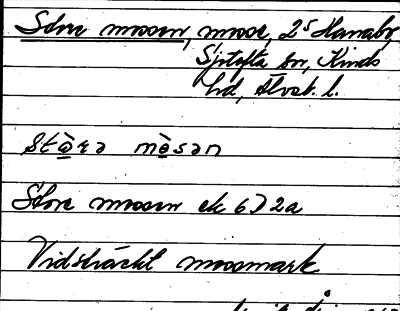 Store mossen, mosse, 2s Hanaby
Sjötofta sn, Kinds
hd, Älvsb. l.
stòra mòsan
Store mossen ek 6D2a
Vidsträckt mossmark